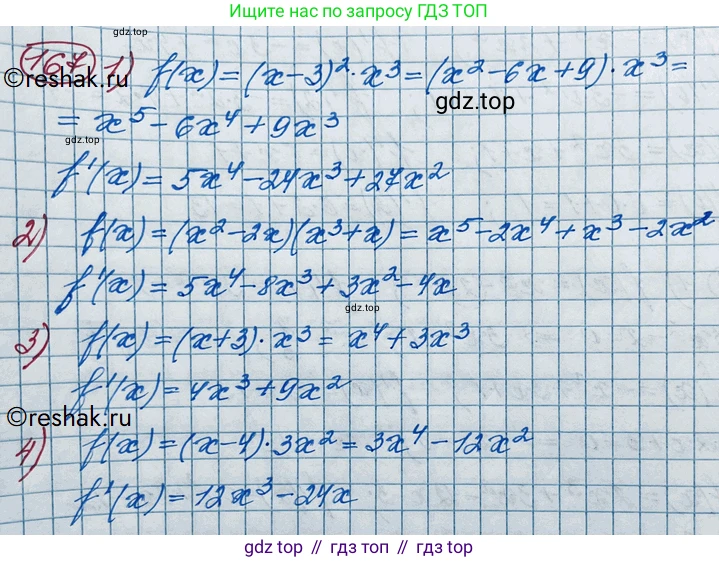 Ищите нас по запросу ГДЗ ТОП
gdz.top
167 1) f(x) = (x-3)² · x³ = (x² - 6x + 9) · x³ =
©reshak.ru
gdz.top
= x⁵ - 6x⁴ + 9x³
gdz.top
f'(x) = 5x⁴ - 24x³ + 27x²
2) f(x) = (x² - 2x)(x³ + x) = x⁵ - 2x⁴ + x³ - 2x²
f'(x) = 5x⁴ - 8x³ + 3x² - 4x
gdz.top
3) f(x) = (x+3) · x³ = x⁴ + 3x³
f'(x) = 4x³ + 9x²
©reshak.ru
4) f(x) = (x-4) · 3x² = 3x⁴ - 12x²
f'(x) = 12x³ - 24x
gdz top // гдз топ // gdz.top